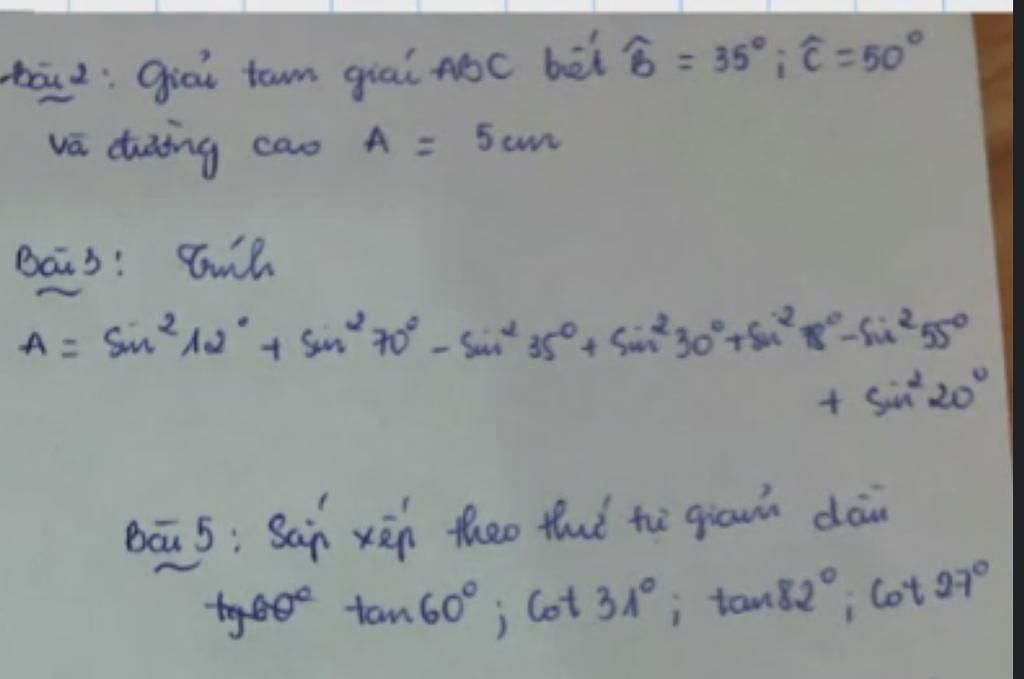 Bài 2: Giải tam giái ABC biết B̂ = 35°; Ĉ = 50°
và đường cao A = 5cm
Bài 3: Tính
A = Sin²12° + Sin²70° - Sin²35° + Sin²30° + Sin² - Sin²55°
+ Sin²20°
Bài 5: Sắp xếp theo thứ tự giảm dần
tg60° tan60°; Cot31°; tan82°; Cot27°